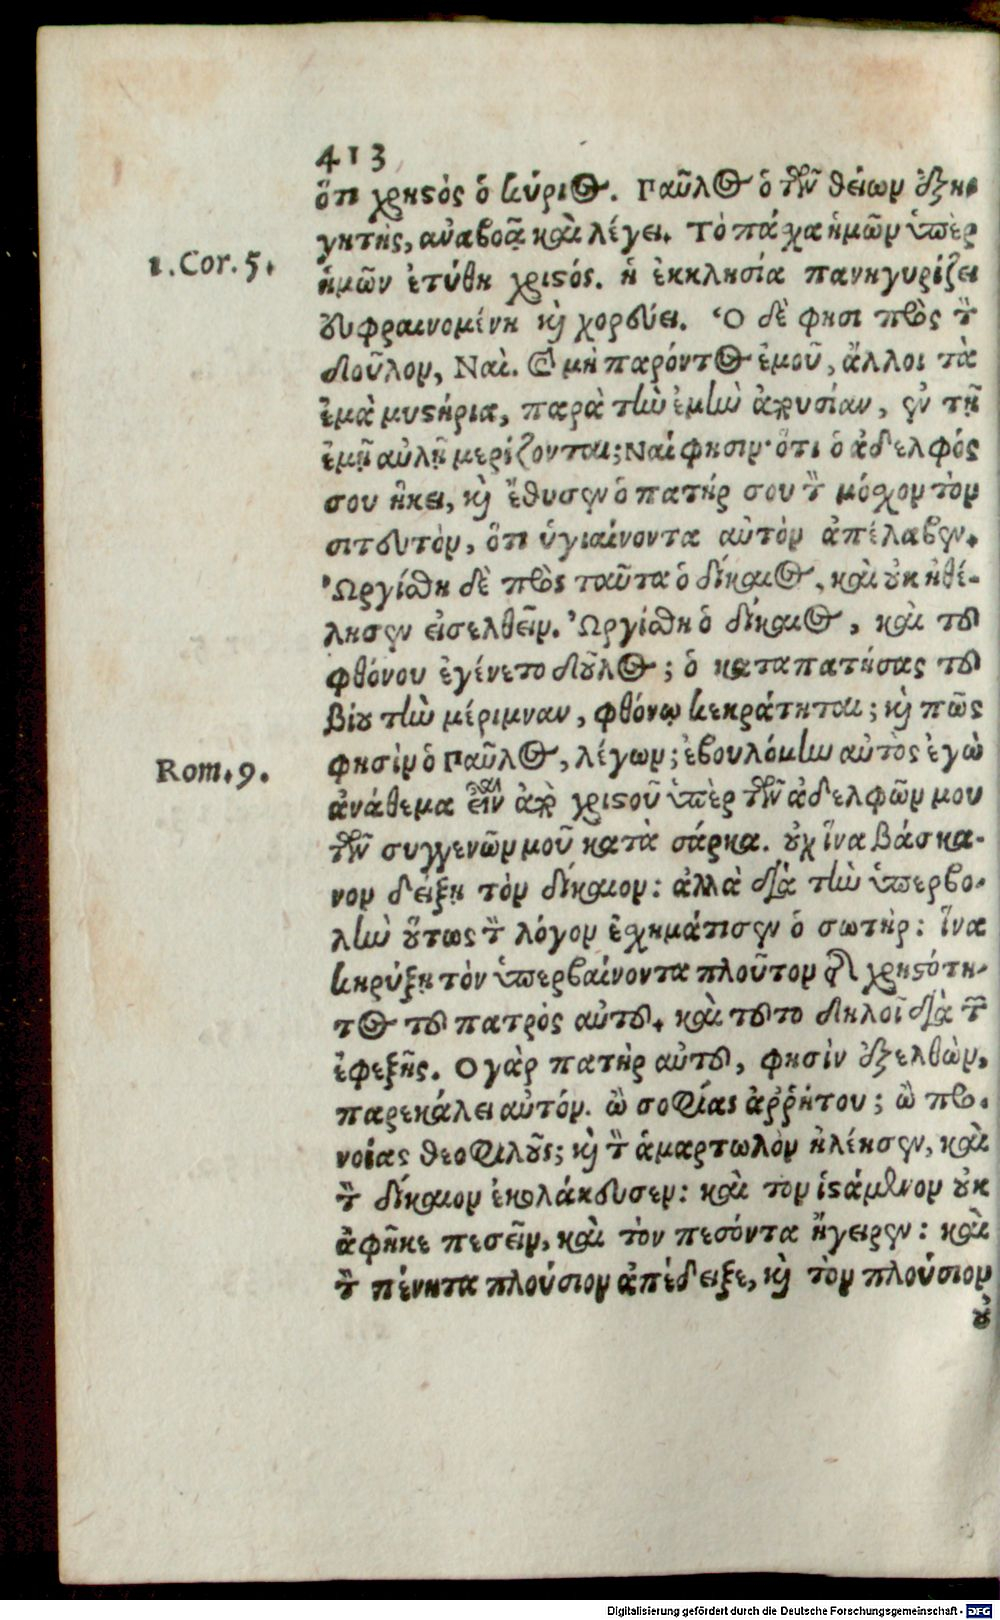 413
ὅτι χρηστὸς ὁ κύριος. Παῦλος ὁ τῶν θείων ἐξη-
γητὴς, αναβοᾷ καὶ λέγει. Τὸ πάχα ἡμῶν ὑπὲρ
1. Cor. 5.
ἡμῶν ἐτύθη χριστός. ἡ ἐκκλησία πανηγυρίζει
ευφραινομένη καὶ χορεύει. Ὁ δὲ φησι πρὸς τὸν
δοῦλον, Ναὶ. καὶ μὴ παρόντος ἐμοῦ, ἄλλοι τὰ
ἐμὰ μυστήρια, παρὰ τὴν ἐμὴν ἀπουσίαν, ἐν τῇ
ἐμῇ αὐλῇ μερίζονται; Ναί φησιν· ὅτι ὁ ἀδελφός
σου ἥκει, καὶ ἔθυσεν ὁ πατήρ σου τὸν μόσχον τὸν
σιτευτὸν, ὅτι ὑγιαίνοντα αὐτὸν ἀπέλαβεν.
Ὠργίσθη δὲ πρὸς ταῦτα ὁ δίκαιος, καὶ οὐκ ἠθέ-
λησεν εἰσελθεῖν. Ὠργίσθη ὁ δίκαιος, καὶ τοῦ
φθόνου ἐγένετο δοῦλος; ὁ καταπατήσας τοῦ
βίου τὴν μέριμναν, φθόνῳ κεκράτηται; καὶ πῶς
Rom. 9.
φησὶν ὁ Παῦλος, λέγων; ἐβουλόμην αὐτὸς ἐγὼ
ἀνάθεμα εἶναι ἀπὸ χριστοῦ ὑπὲρ τῶν ἀδελφῶν μου
τῶν συγγενῶν μοῦ κατὰ σάρκα. οὐχ ἵνα βάσκα-
νον δείξῃ τὸν δίκαιον: ἀλλὰ διὰ τὴν ὑπερβο-
λὴν οὕτως τὸν λόγον ἐχημάτισεν ὁ σωτὴρ: ἵνα
κηρύξῃ τὸν ὑπερβαίνοντα πλοῦτον τῆς χρηστότη-
τος τοῦ πατρὸς αὐτοῦ. καὶ τοῦτο δηλοῖ διὰ τῶν
ἐφεξῆς. Ο γὰρ πατὴρ αὐτοῦ, φησὶν ἐξελθὼν,
παρεκάλει αὐτόν. ὢ σοφίας ἀῤῥήτου; ὢ προ-
νοίας θεοφιλοῦς; καὶ τὸν ἁμαρτωλὸν ἠλέησεν, καὶ
τὸν δίκαιον ἐκολάκευσεν: καὶ τον ἱστάμενον οὐκ
ἀφῆκε πεσεῖν, καὶ τὸν πεσόντα ἤγειρεν: καὶ
τὸν πένητα πλούσιον ἀπέδειξε, καὶ τὸν πλούσιον
οὐ
Digitalisierung gefördert durch die Deutsche Forschungsgemeinschaft - DFG